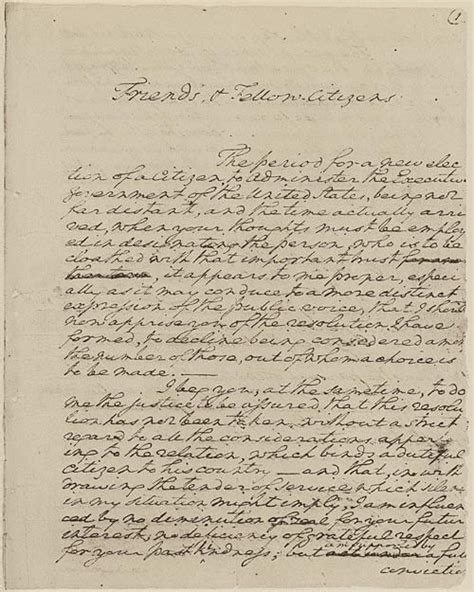 (1
Friends, & Fellow-Citizens
The period for a new elec
tion of a Citizen, to Administer the Executive
Government of the United States, being not
far distant, and the time actually arri
ved, when your thoughts must be employ
ed in designating the person, who is to be
cloathed with that important trust
, it appears to me proper, especi
ally as it may conduce to a more distinct
expression of the public voice, that I should
now apprise you of the resolution I have
formed, to decline being considered among
the number of those, out of whom a choice is
to be made. —
I beg you, at the same time, to do
me the justice to be assured, that this resolu
tion has not been taken, without a strict
regard to all the considerations apper
ing to the relation, which binds a dutiful
citizen to his country — and that, in with
drawing the tender of service which silence
in my situation might imply, I am influen
ced by no diminution of zeal for your future
interest, no deficiency of grateful respect
for your past kindness; but am supported by a full
conviction